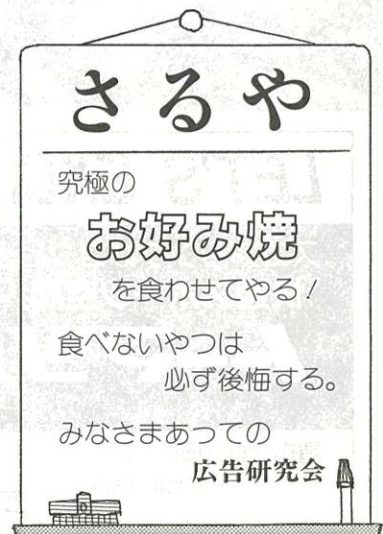 さるや
究極の
お好み焼
を食わせてやる！
食べないやつは
必ず後悔する。
みなさまあっての
広告研究会